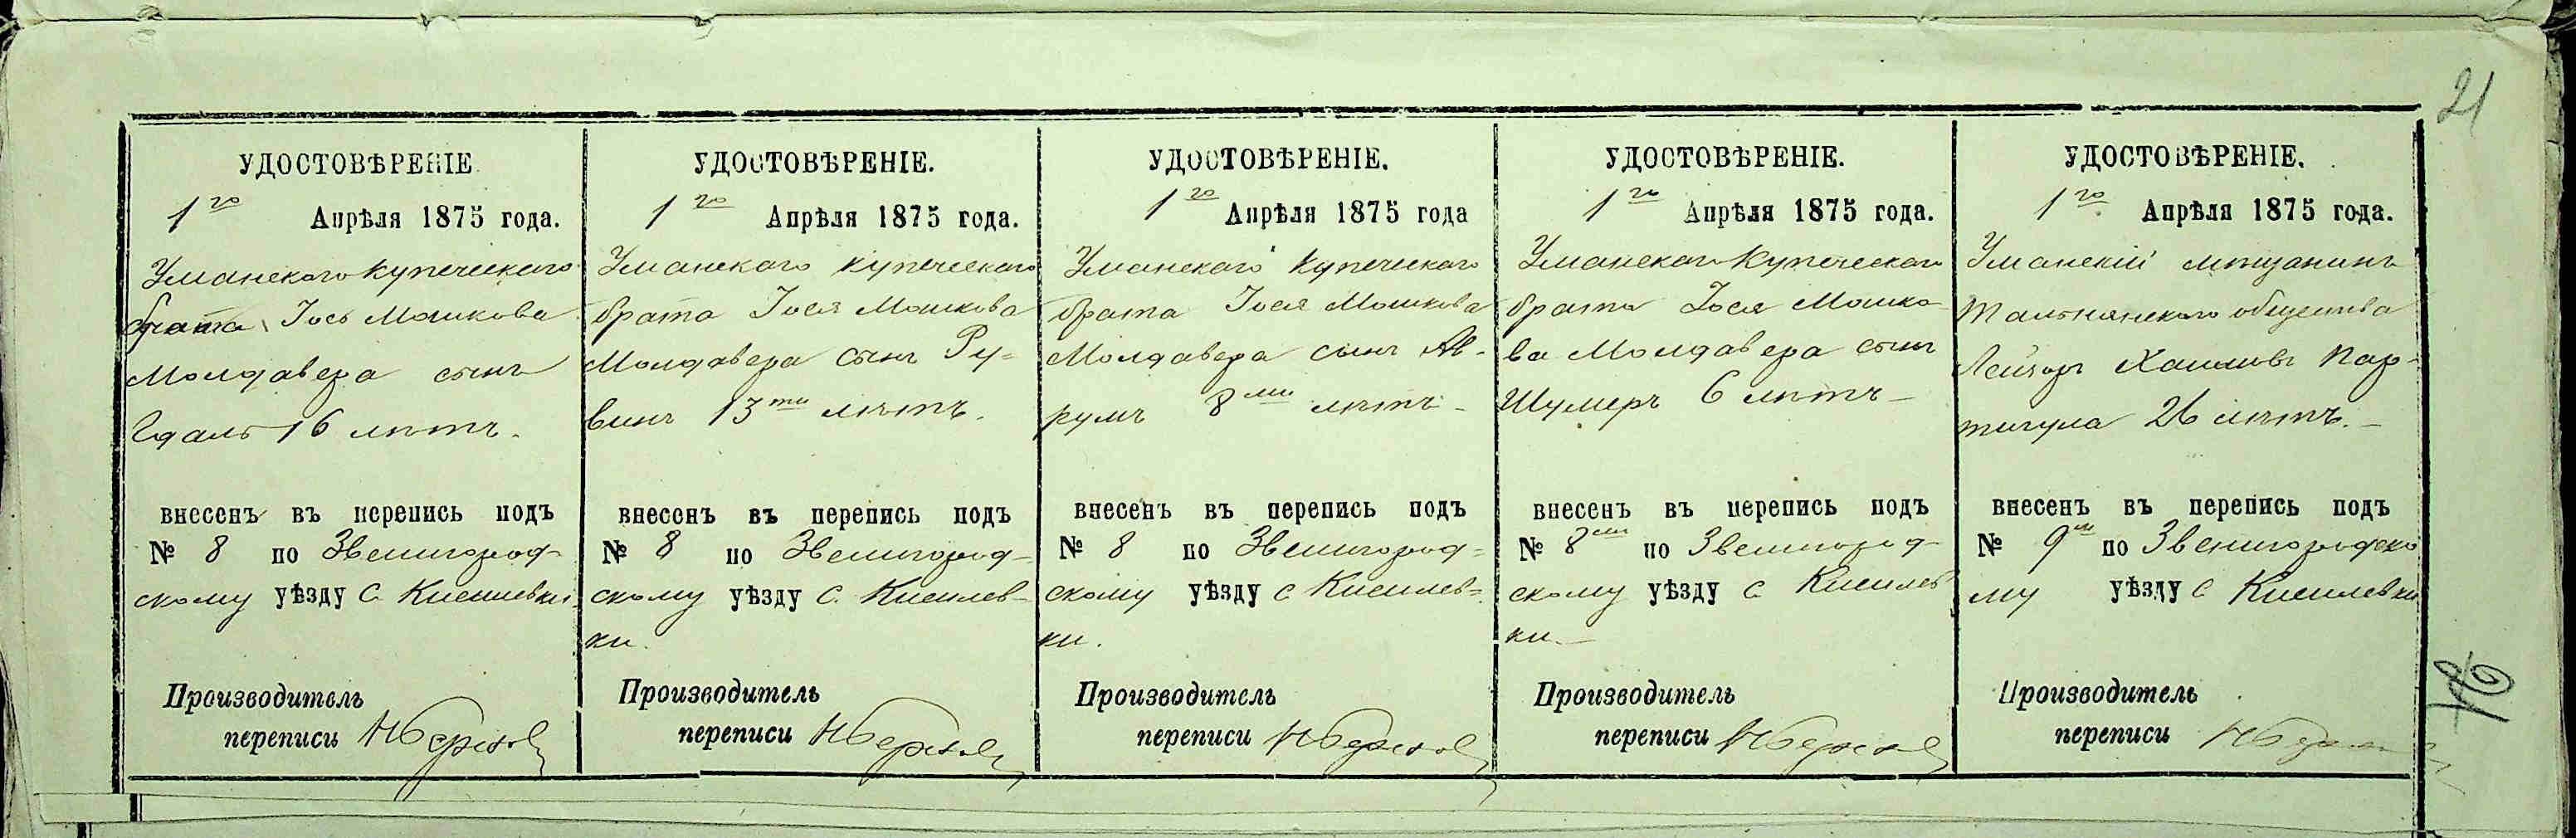 21
УДОСТОВѢРЕНІЕ
1го Апрѣля 1875 года.
Уманского купеческого
брата Іось Мошкова
Молдавера сынъ
Гдаль 16 лѣтъ.
внесенъ въ перепись подъ
№ 8 по Звенигород-
скому уѣзду с. Киселевки.
Производитель
переписи
УДОСТОВѢРЕНІЕ.
1го Апрѣля 1875 года.
Уманскаго купеческаго
брата Іося Мошкова
Молдавера сынъ Ру-
винъ 13ти лѣтъ.
внесенъ въ перепись подъ
№ 8 по Звенигород-
скому уѣзду с. Киселев-
ки.
Производитель
переписи
УДОСТОВѢРЕНІЕ.
1го Апрѣля 1875 года
Уманскаго купеческаго
брата Іося Мошкова
Молдавера сынъ Ав-
румъ 8ми лѣтъ -
внесенъ въ перепись подъ
№ 8 по Звенигород-
скому уѣзду с Киселев-
ки.
Производитель
переписи
УДОСТОВѢРЕНІЕ.
1го Апрѣля 1875 года.
Уманскаго Купеческаго
брата Іося Мошко-
ва Молдавера сынъ
Шумеръ 6 лѣтъ -
внесенъ въ перепись подъ
№ 8мъ по Звенигород-
скому уѣзду с Киселев
ки. -
Производитель
переписи
УДОСТОВѢРЕНІЕ.
1го Апрѣля 1875 года.
Уманскій мѣщанинъ
Тальнянского общества
Лейзоръ Хаимовъ Пор-
тигула 26 лѣтъ. -
внесенъ въ перепись подъ
№ 9м по Звенигородско
му уѣзду с Киселевки
Производитель
переписи